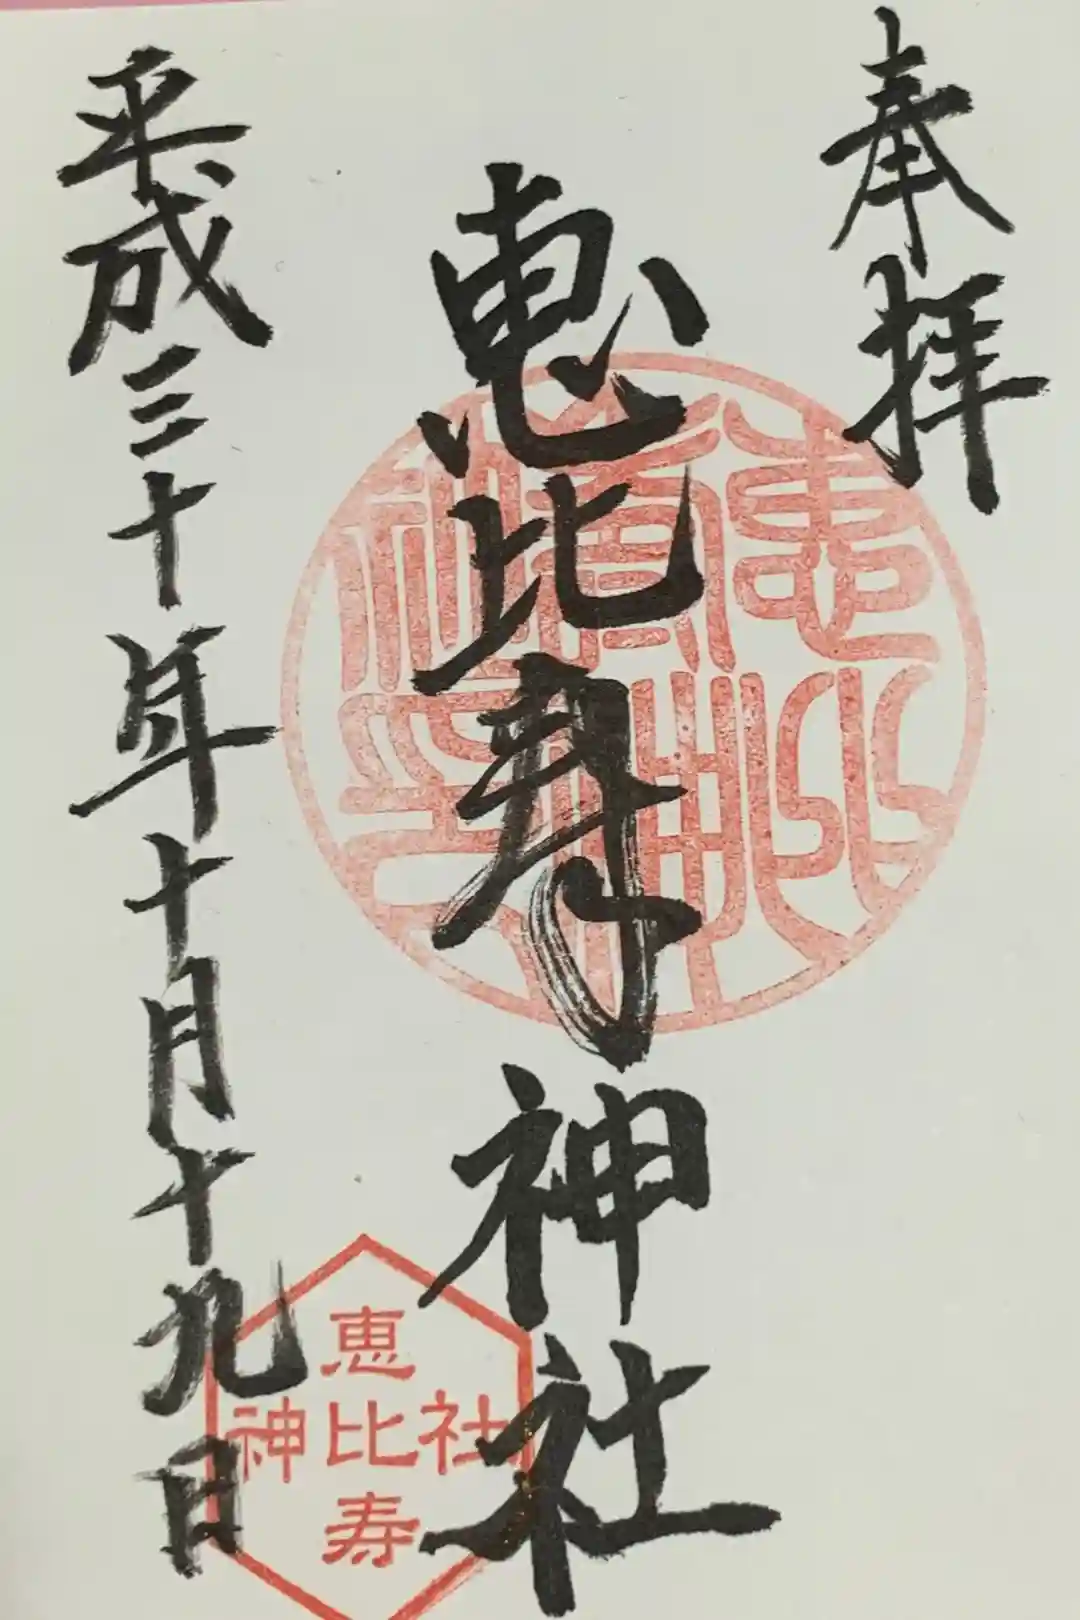 奉拝
恵比寿神社
平成三十年十月十九日
恵
神比社
寿